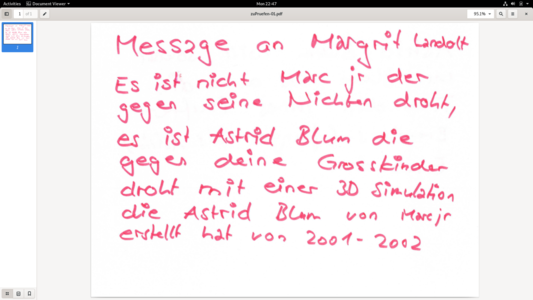 Activities Document Viewer Mon 22:47
1 of 1 zuProzHin-01.pdf 80.1%
Message an Margrit Landolt
Es ist nicht Marc jr der
gegen seine Nichten droht,
es ist Astrid Blum die
gegen deine Grosskinder
droht mit einer 3D Simulation
die Astrid Blum von Marc jr
erstellt hat von 2001-2002